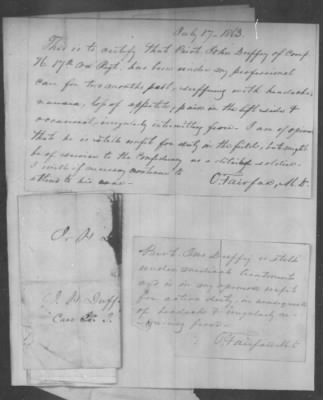 July 17. 1863.
This is to certify that Privt John Duffy of Comp
H 17th Regt, has been under my professional
care for two months past, suffering with headache,
nausea, loss of appetite, pain in the left side &
occasional, irregularly intermitting fever. I am of opinion
that he is totally unfit for duty in the field, but might
be of service to the Confederacy as a detailed soldier.
I will if necessary
attend to his case.
O. Fairfax, M.D.
J. H. Duff
Privt. Jno Duffy is still
under medical treatment
and is in my opinion unfit
for active duty, in consequence
of headache & irregularly
fever.
O. Fairfax M.D.